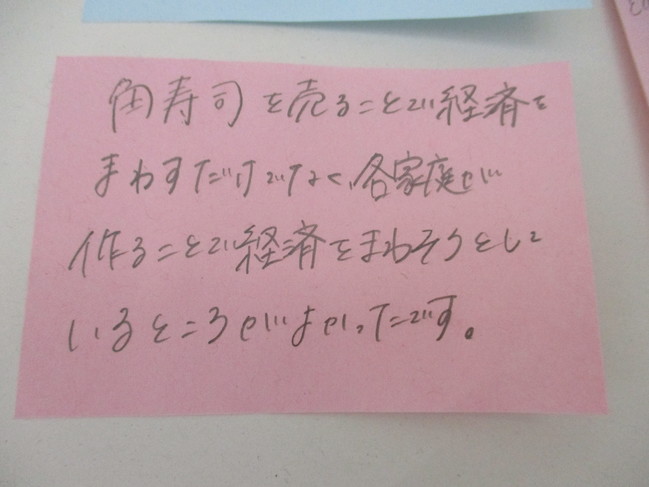 角寿司を売ることで経済を
まわすだけでなく、各家庭が
作ることで経済をまわそうとして
いるところがよかったです。